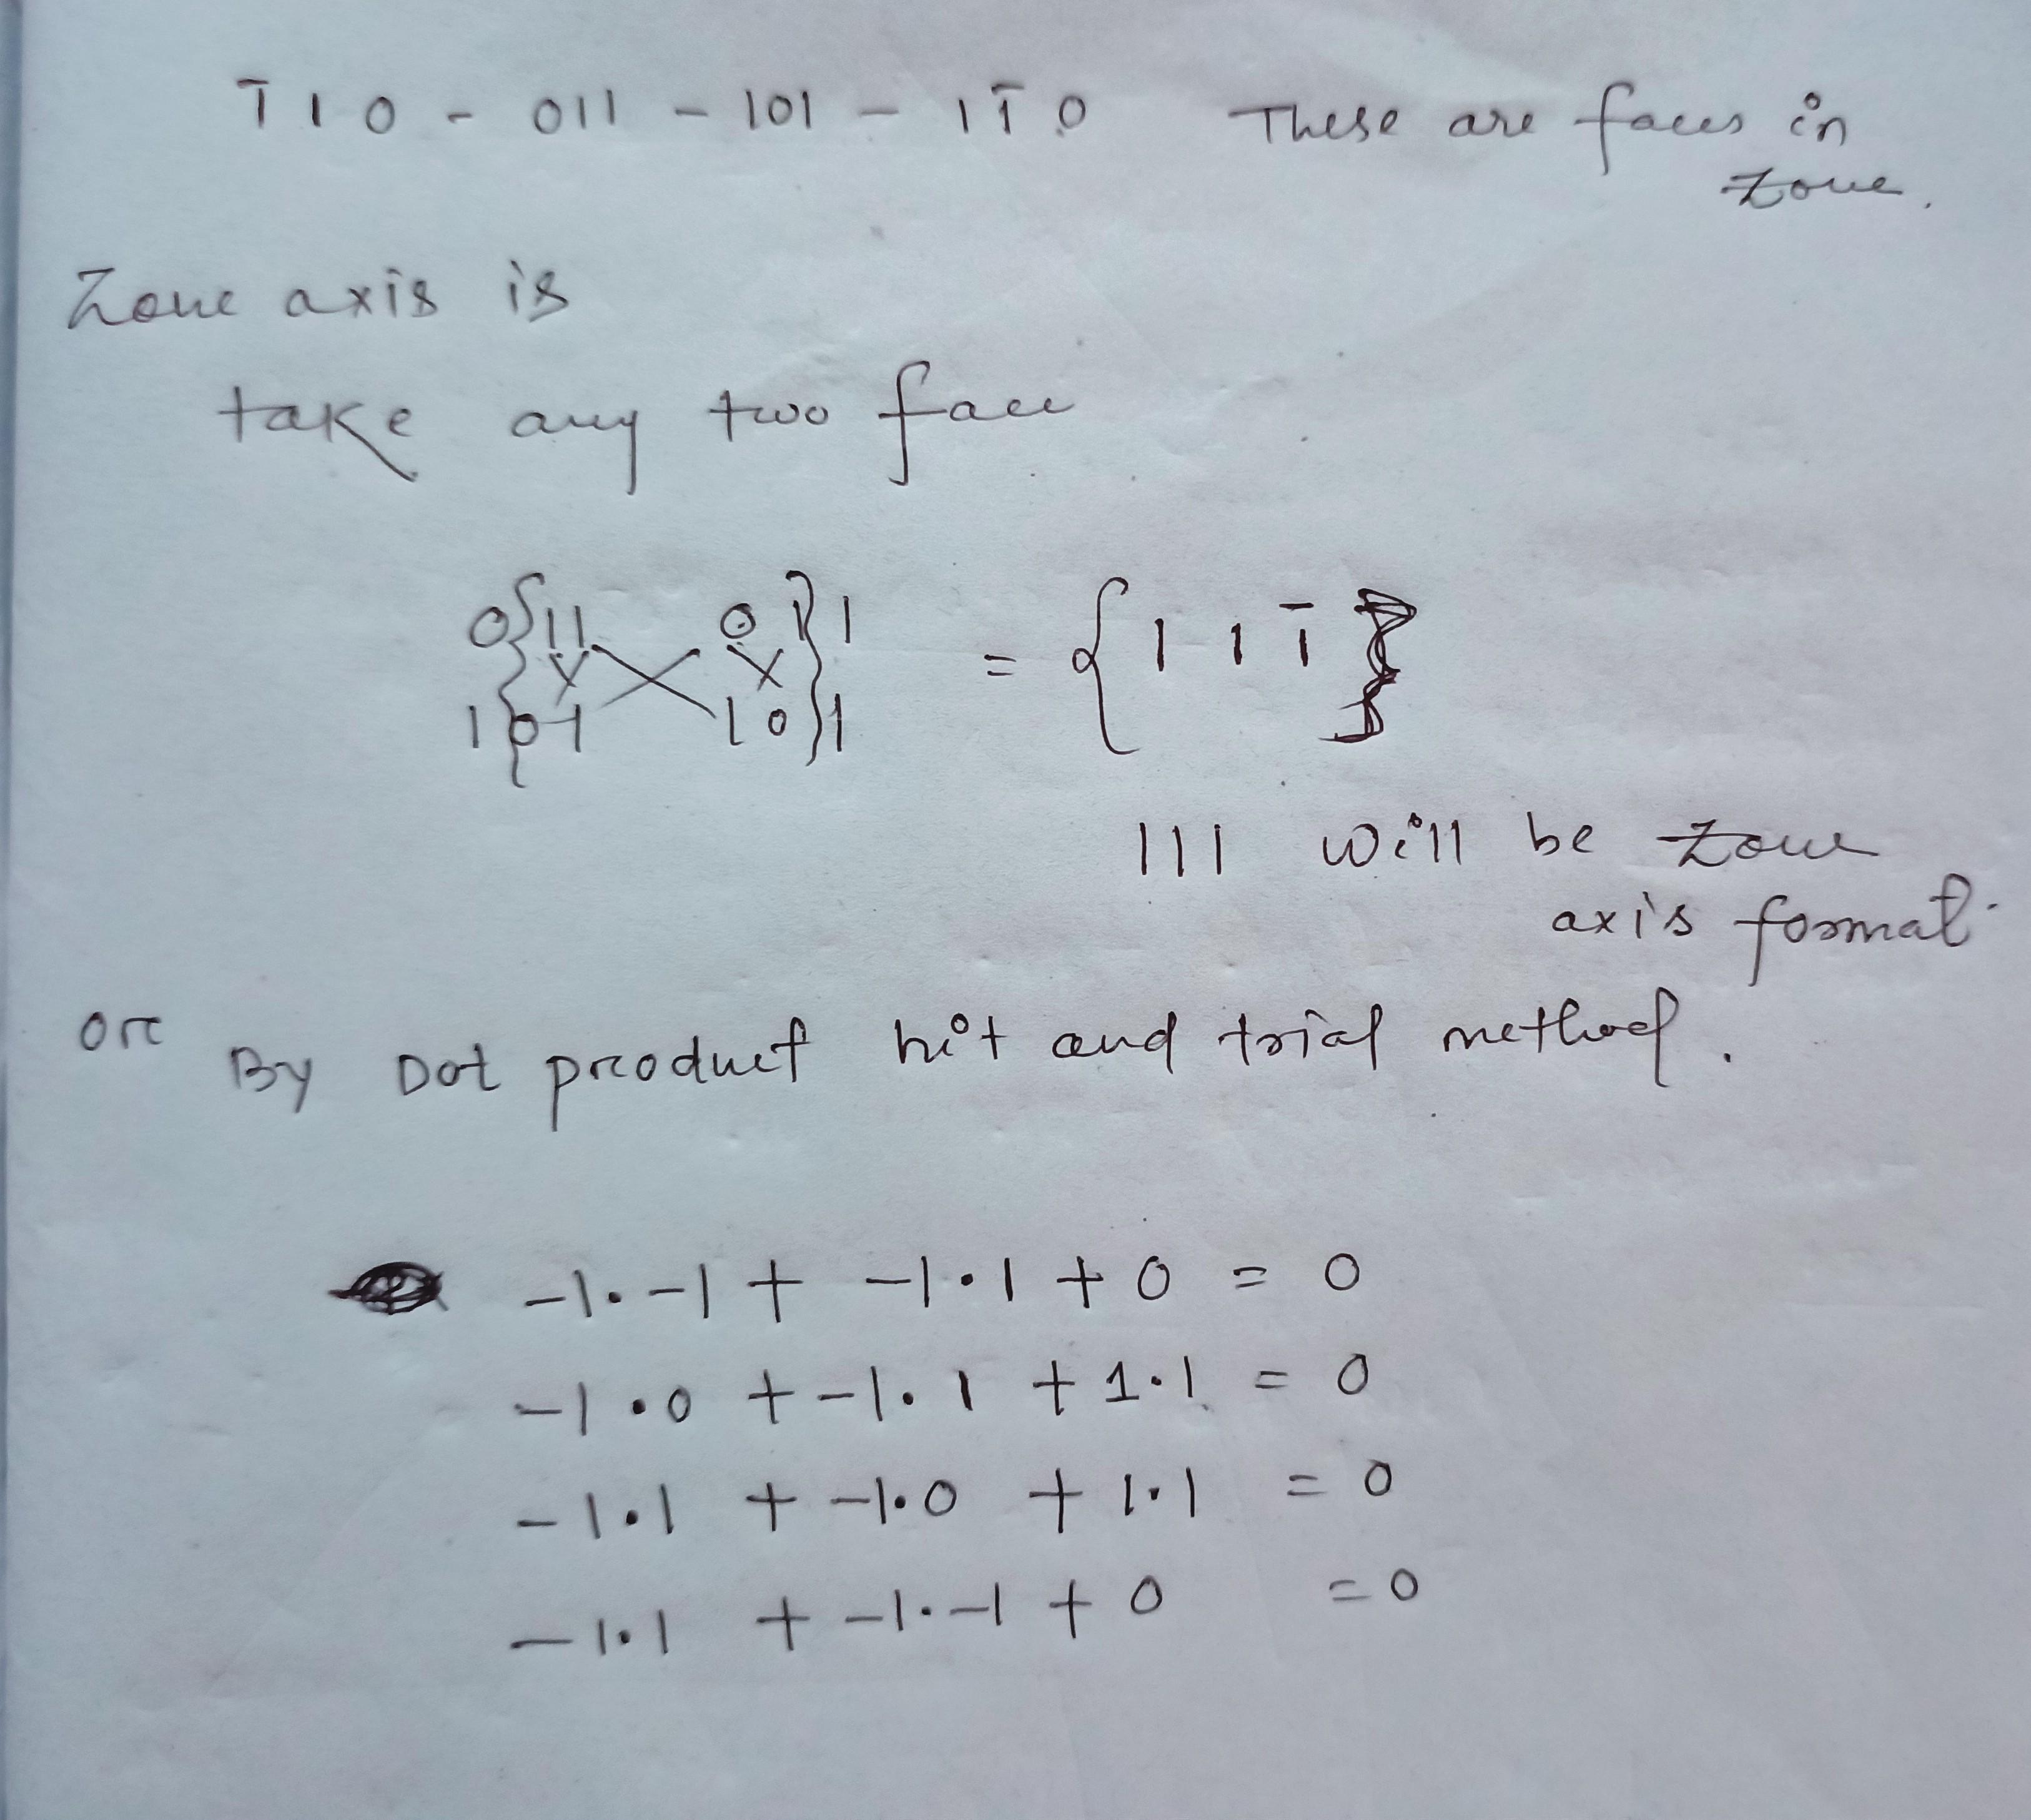 1̅ 1 0 - 011 - 101 - 1 1̅ 0 These are faces in
zone.
Zone axis is
take any two face
0{11 0 1}1
= {1 1 1̅}
1 0 1 1 0}1
111 will be zone
axis format.
or By Dot product hit and trial method.
-1.-1 + -1.1 + 0 = 0
-1.0 + -1.1 + 1.1 = 0
-1.1 + -1.0 + 1.1 = 0
-1.1 + -1.-1 + 0 = 0